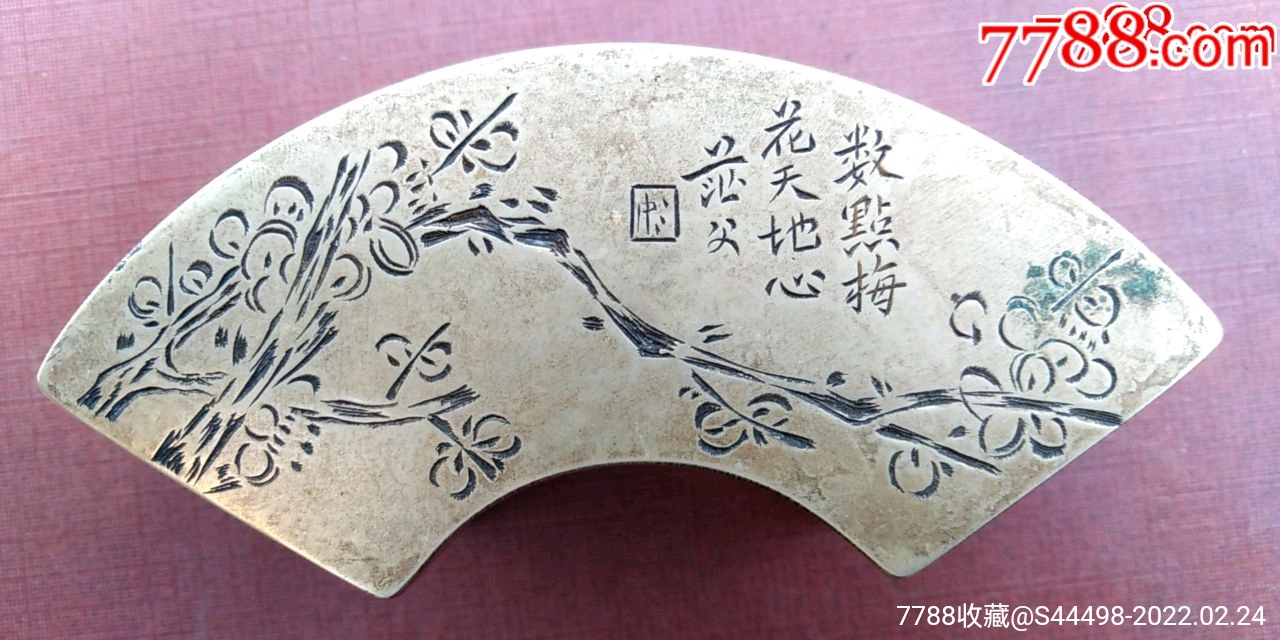 数點梅
花天地心
茫父
7788.com
7788收藏@S44498-2022.02.24